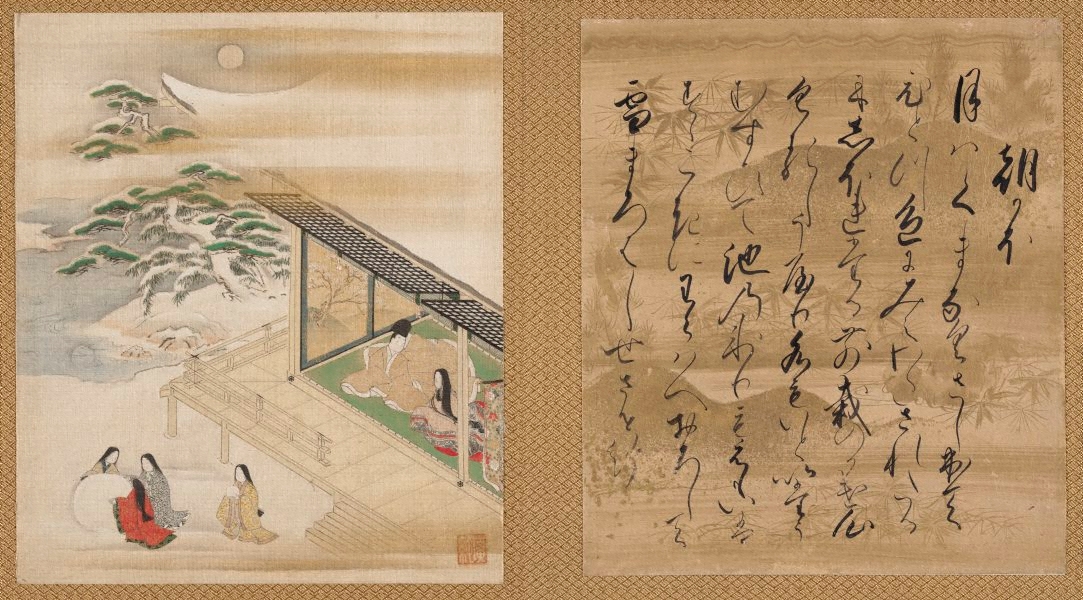 朝かほ
月はくまなくさし出て
ひとつ色にみえわたされたる
にしほれたる前栽のかけ心
くるしうやり水もいといたう
むせひて池の氷もえもいは
すすこきにわらはへおろして
雪まろはしせさせ給